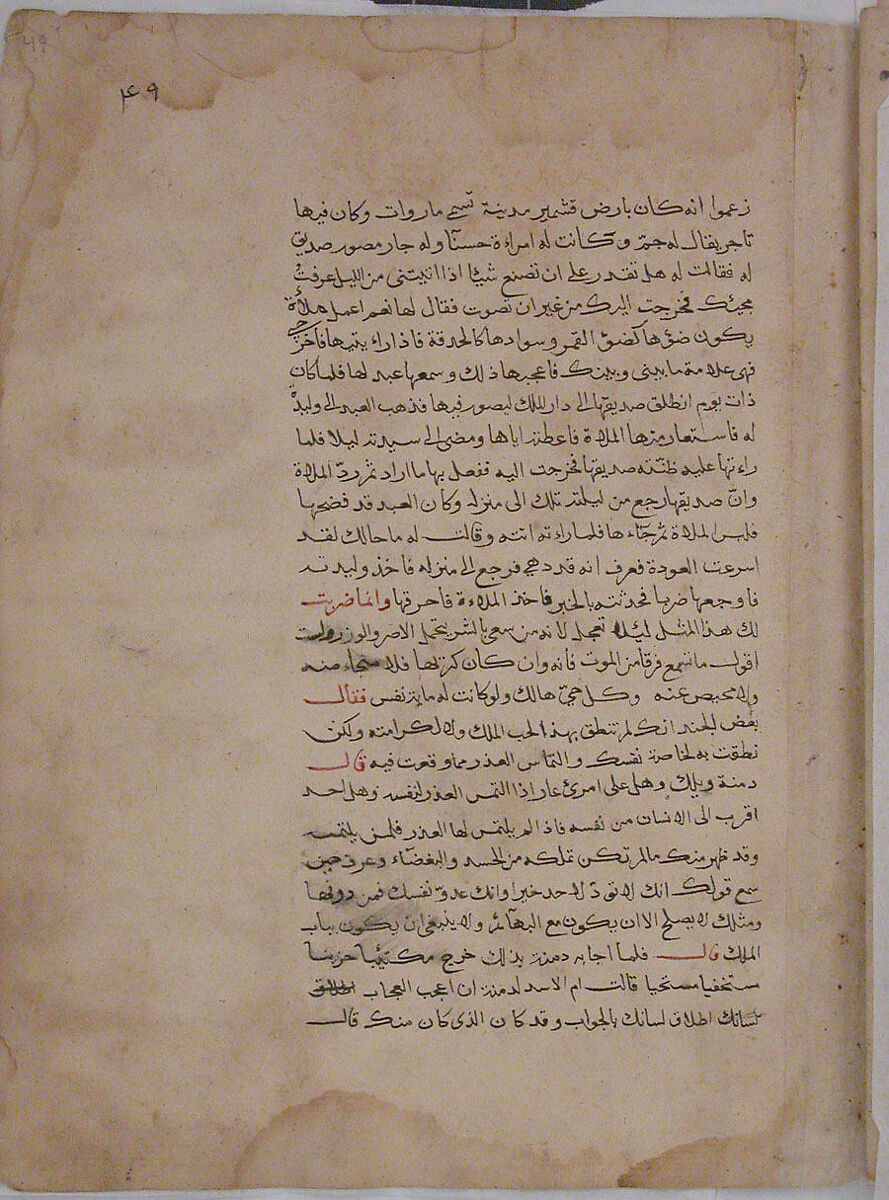 49
٤٩
زعموا انه كان بارض قشمير مدينة تسمى ماروات وكان فيها
تاجر يقال له وكانت له امراءة حسنا وله جار مصور صديق
له فقالت له هل تقدر على ان تصنع شيئا اذا اتيتني من الليل عرفت
مجيئك فخرجت اليك من غير ان تصوت فقال لها نعم اعمل ملأة
يكون ضؤها كضؤ القمر وسوادها كالحدقة فاذا رايتيها فاخرجي
فهي علامة ما بيني وبينك فاعجبها ذلك وسمعها عبد لها فلما كان
ذات يوم انطلق صديقها الى دار الملك ليصور فيها فذهب العبد الى وليدة
له فاستعار منها الملاة فاعطته اياها ومضى الى سيدته ليلا فلما
راءتها عليه ظنته صديقها فخرجت اليه ففعل بها ما اراد ثم ردّ الملاة
وانّ صديقها رجع من ليلته تلك الى منزله وكان العبد قد فضحها
فلبس الملاة ثم جآءها فلما راءته اتته وقالت له ما حالك لقد
اسرعت العودة فعرف انه قد دهي فرجع الى منزله فاخذ وليدته
فاوجعها ضربا فحدثته بالخبر فاخذ الملاءة فاحرقها وانما ضربت
لك هذا المثل ليلا تعجل لانه من سعى بالشر يتحمل الاصر والوزر ولست
اقول ما تسمع فرقا من الموت فانه وان كان كرتها فلا منجاء منه
ولا محيص عنه وكل حيّ هالك ولو كانت له ماية نفس فقال
بعض الجند انك لم تنطق بهذا الحب الملك ولا لكرامته ولكن
نطقت به لخاصة نفسك والتماس العذر مما وقعت فيه قال
دمنة ويلك وهل على امرئ عار اذا التمس العذر لنفسه وهل احد
اقرب الى الانسان من نفسه فاذا لم يلتمس لها العذر فلمن يلتمسه
وقد ظهر منك ما لم تكن تملكه من الحسد والبغضآء وعرف حين
سمع قولك انك لا تودّ لاحد خيرا وانك عدوّ نفسك فمن دونها
ومثلك لا يصلح الا ان يكون مع البهآئم ولا ينبغي ان يكون بباب
الملك قال فلما اجابه دمنة بذلك خرج مكتئبا حزينا
مستخفيا مستحيا قالت ام الاسد لدمنة ان اعجب العجاب
لسانك اطلاق لسانك بالجواب وقد كان الذى كان منك قال